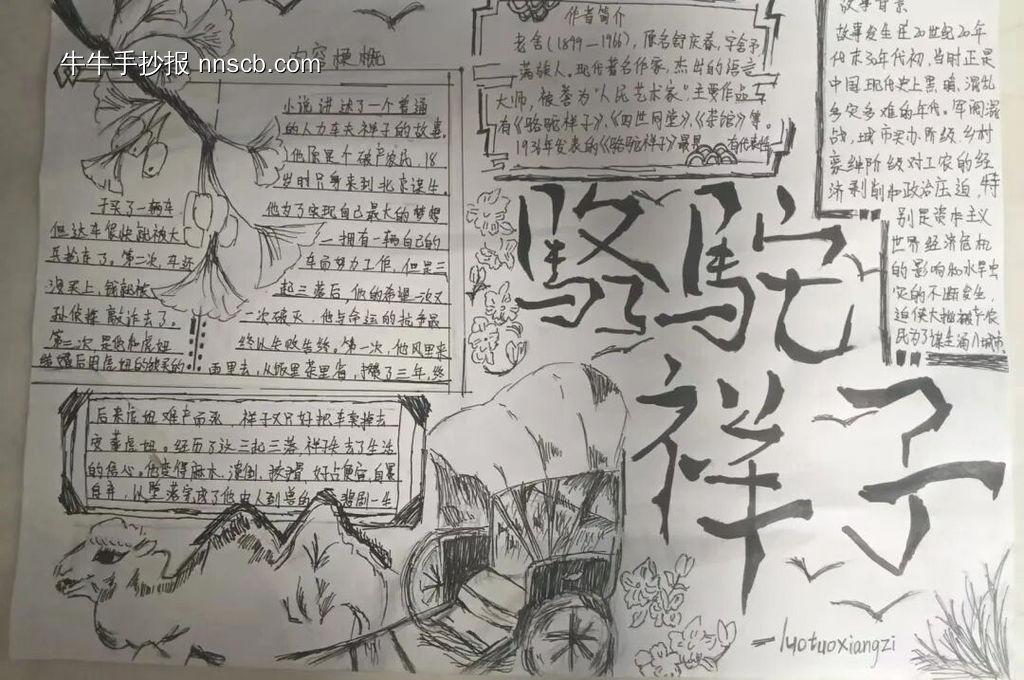 牛牛手抄报 nnscb.com
内容梗概
小说讲述了一个普通
的人力车夫祥子的故事。
他原是个破产农民，18
岁时只身来到北京谋生。
他为了实现自己最大的梦想
一拥有一辆自己的
车而努力工作，但是三
起三落后，他的希望一次又
一次破灭，他与命运的抗争最
终以失败告终。第一次，他风里来
雨里去，从饭里茶里省，攒了三年，终
于买了一辆车
但这车很快就被大
兵抢走了。第二次，车还
没买上，钱就被
孙侦探敲诈去了。
第三次是他和虎妞
结婚后用虎妞的钱买的
后来虎妞难产而死，祥子又只好把车卖掉去
安葬虎妞。经历了这三起三落，祥子失去了生活
的信心。他变得麻木、潦倒、狡猾、好占便宜、自暴
自弃，从
作者简介
老舍(1899—1966)，原名舒庆春，字舍予
满族人。现代著名作家，杰出的语言
大师，被誉为“人民艺术家”主要作品
有《骆驼祥子》、《四世同堂》、《茶馆》等。
1936年发表的《骆驼祥子》最具 有代表性
故事背景
故事发生在20世纪20年
代末30年代初，当时正是
中国现代史上黑暗、混乱
多灾多难的年代。军阀混
战，城市买办阶级、乡村
豪绅阶级对工农的经
济剥削和政治压迫，特
别是资本主义
世界经济危机
的影响和水旱虫
灾的不断发生，
迫使大批破产农
民为了谋生涌入城市
駱駝
祥子
—luotuoxiangzi